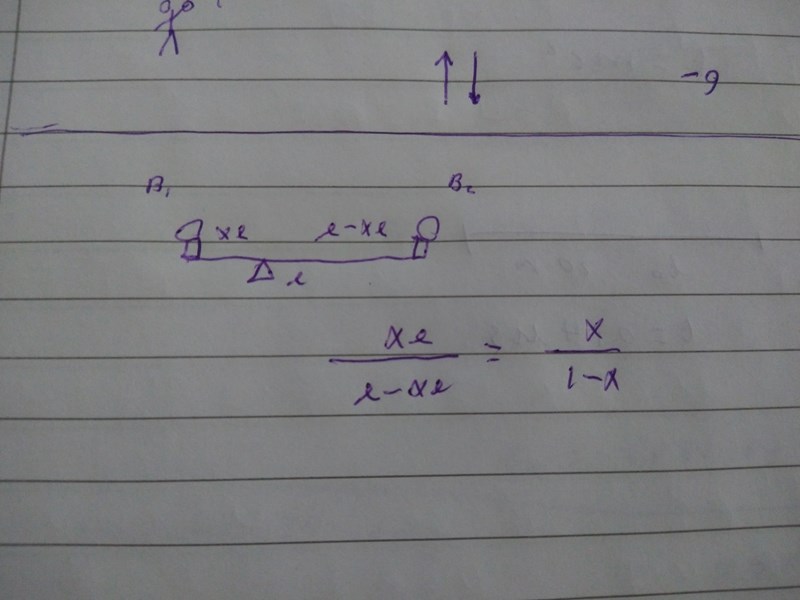 -g
B₁ B₂
xl l-xl
l
xl / l-xl = x / 1-x